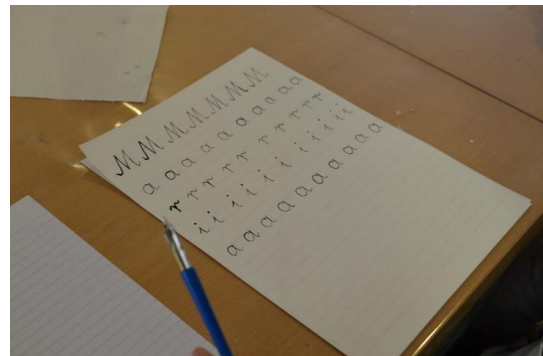 M M M M M M M
a a a a a a a a a a
r r r r r r r r r r
i i i i i i i i i i i
a a a a a a a a a a